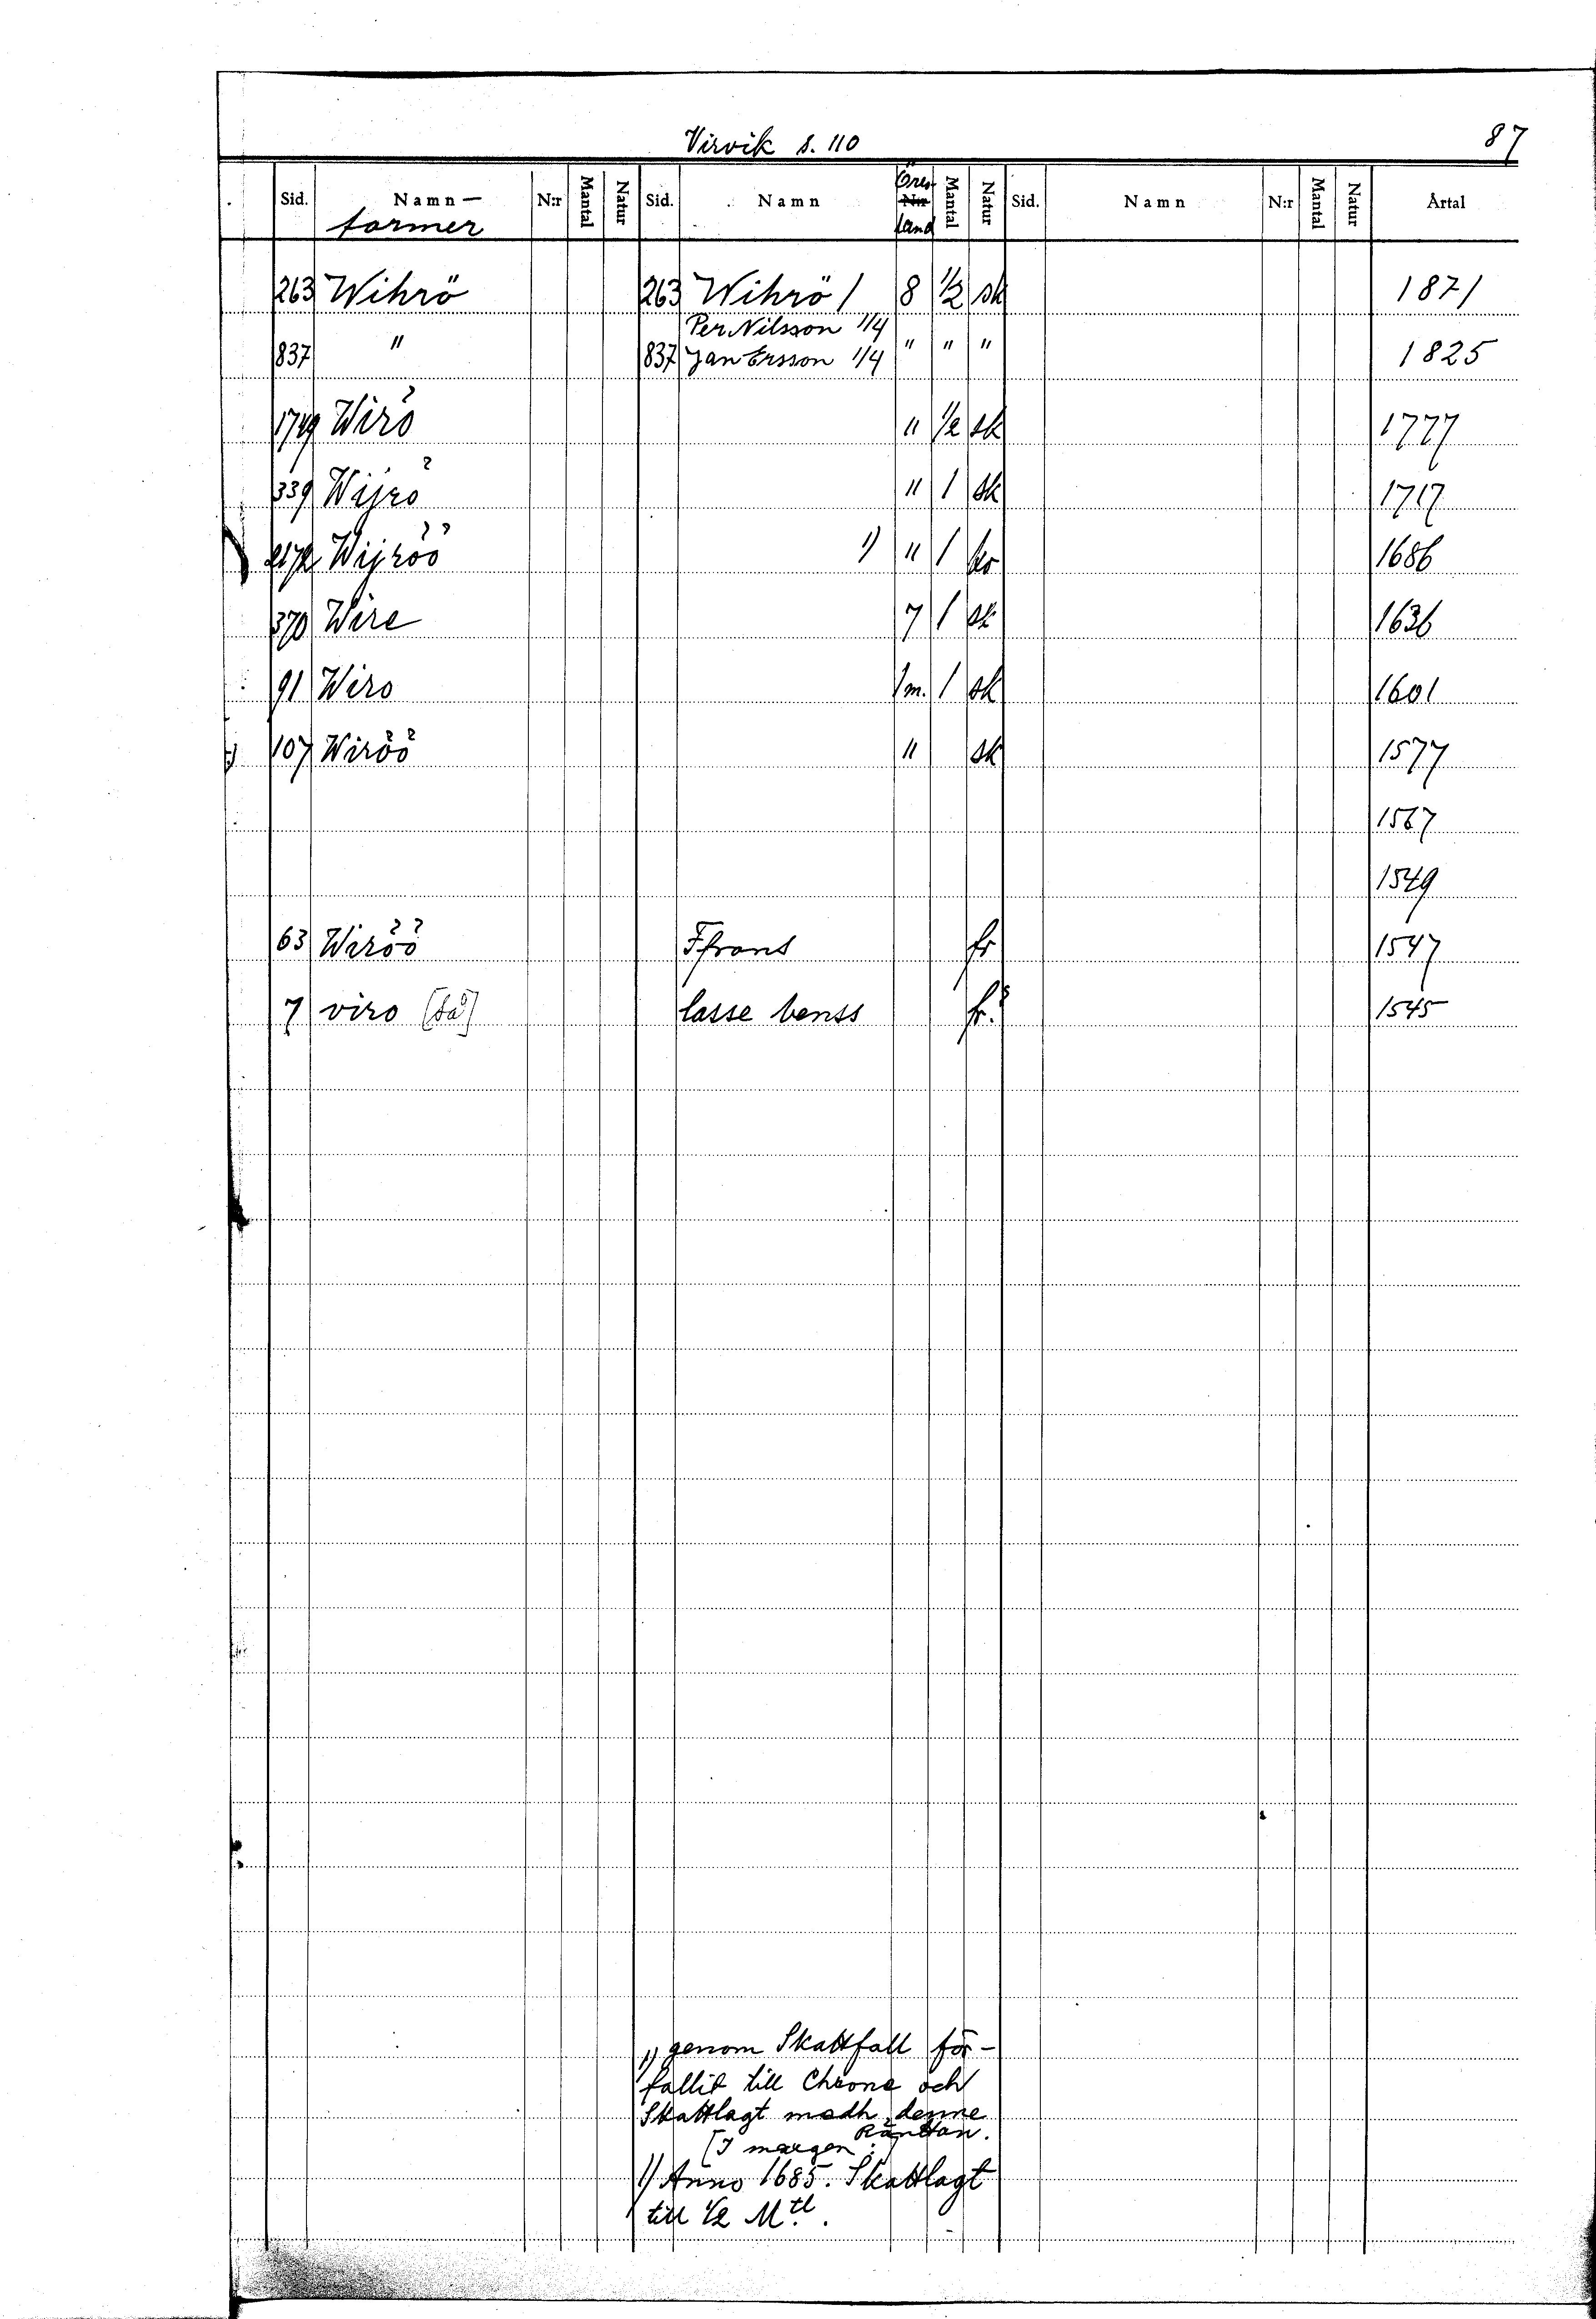 Virvik s. 110
87
Sid. Namn- N:r Mantal Natur Sid. Namn Öres- N:r Mantal Natur Sid. Namn N:r Mantal Natur Årtal
former land
263 Wihrö 263 Wihrö / 8 1/2 sk 1871
Per Nilsson 1/4
837 " 837 Jan Ersson 1/4 " " " 1825
1749 Wirö " 1/2 sk 1777
339 Wijrö " 1 sk 1717
2172 Wijröö 1) " 1 kr 1686
370 Wire 7 1 sk 1636
91 Wiro 1m. 1 sk 1601
107 Wiröö " sk 1577
1567
1549
63 Wiröö Ffrans fr 1547
7 viro [så] lasse benss fr.? 1545
1) genom Skattfall för-
fallit till Chrono och
Skattlagt madh denne
Räntan.
[I margen:]
1) Anno 1685. Skattlagt
till 1/2 Mtl.